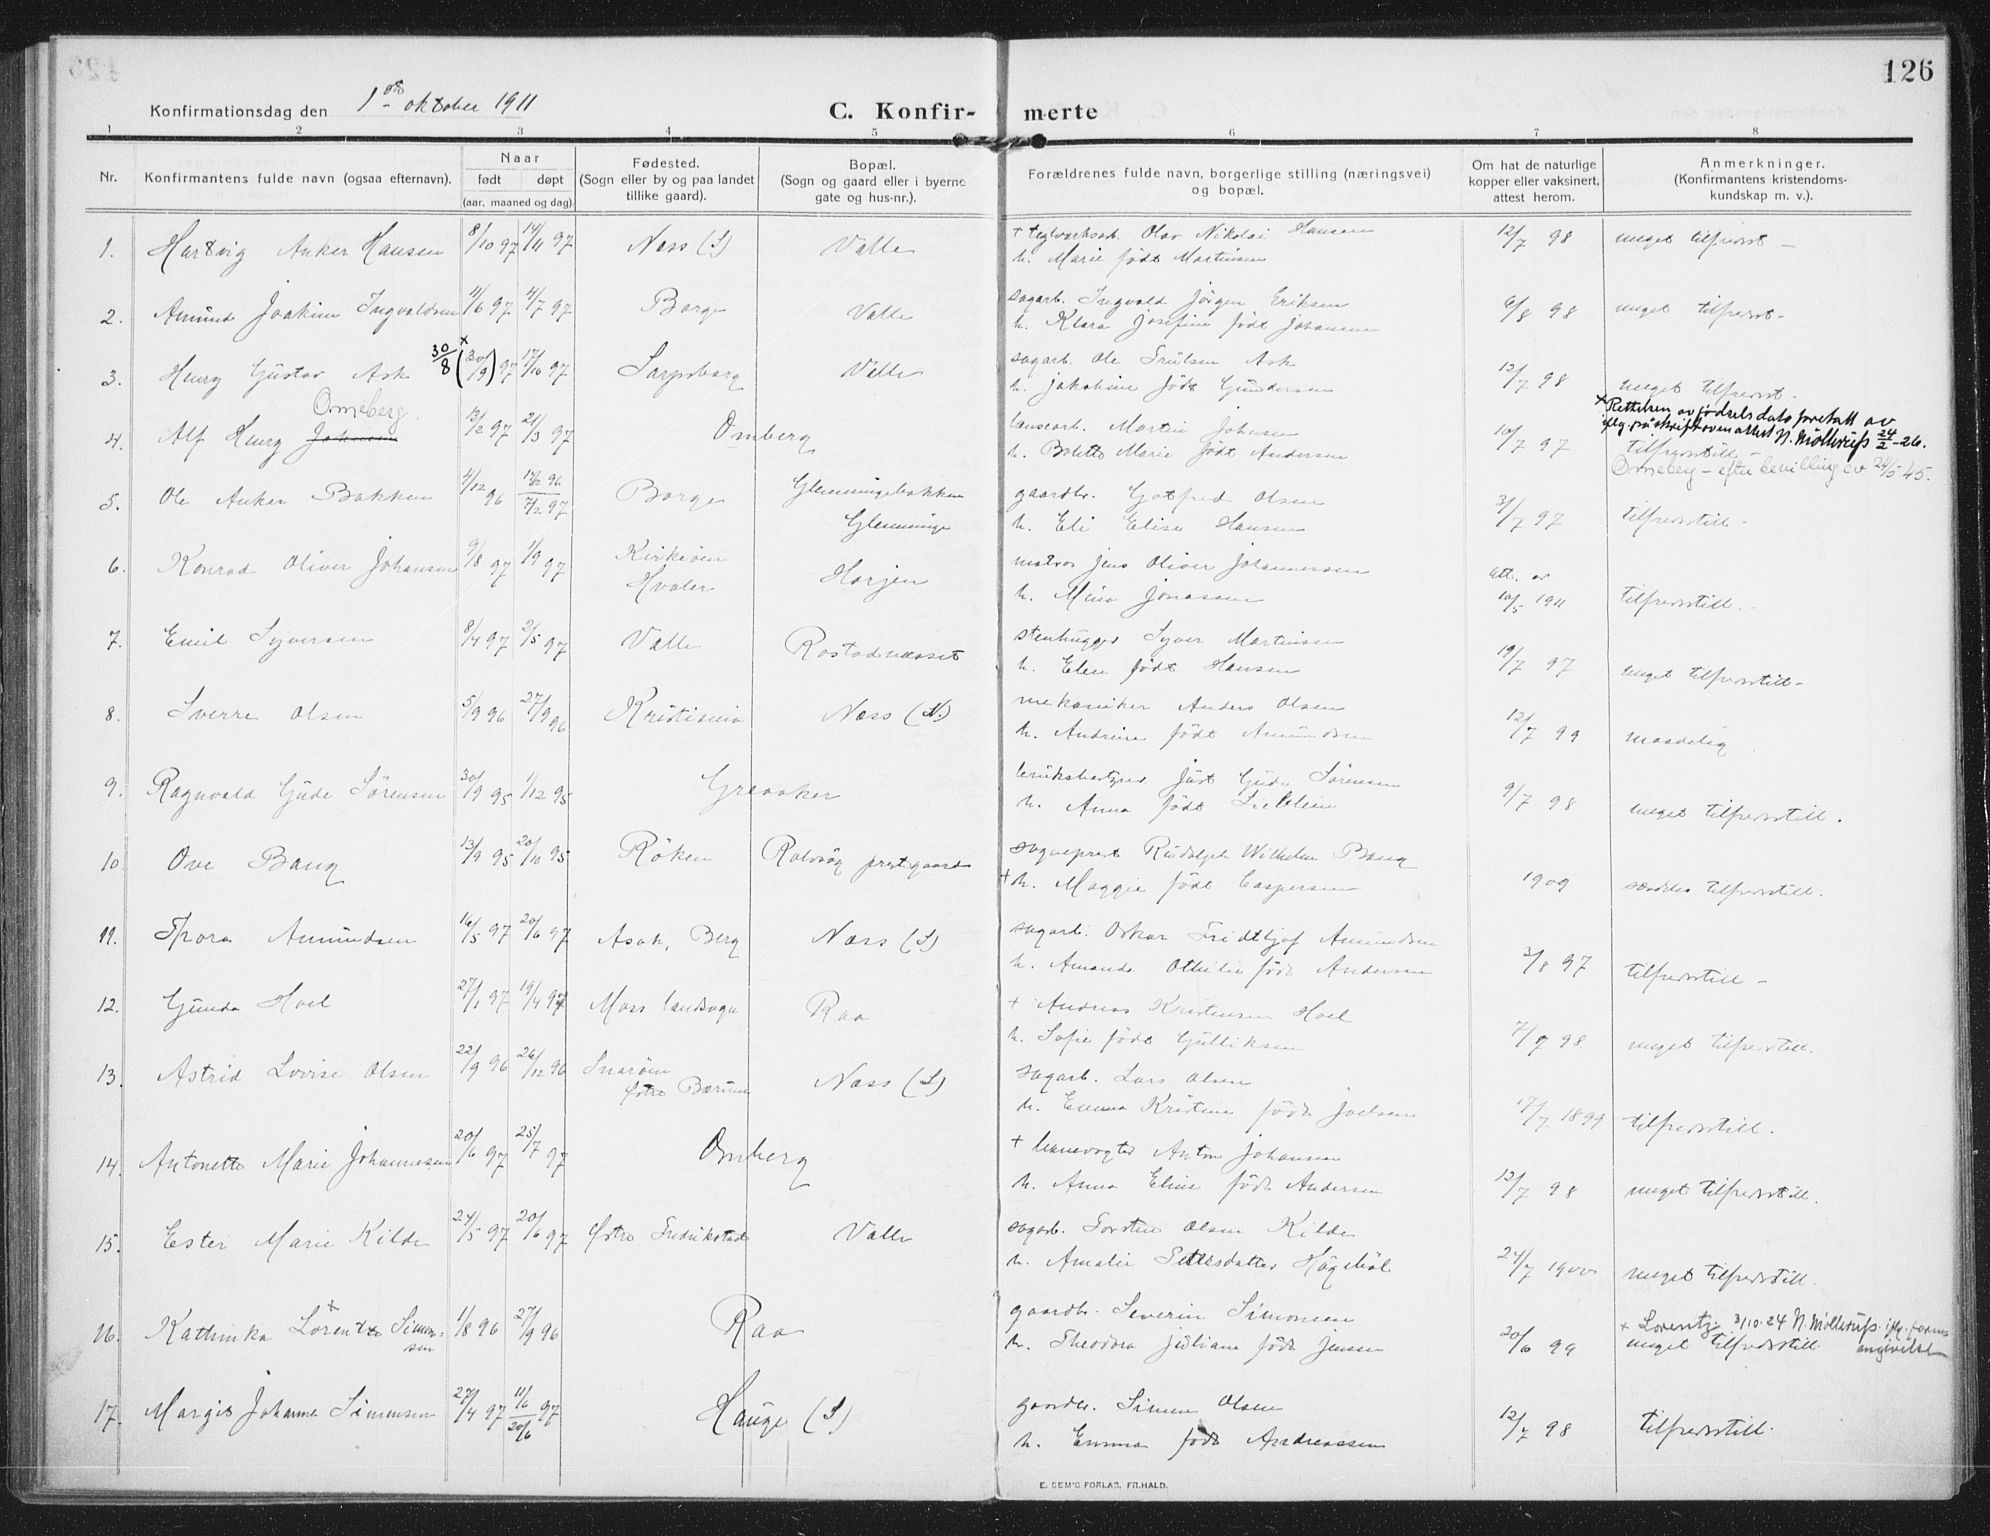 126
Konfirmationsdag den 1ste oktober 1911
C. Konfir- merte
1 2 3 4 5 6 7 8
Nr.
Konfirmantens fulde navn (ogsaa efternavn).
Naar
født døpt
(aar, maaned og dag)
Fødested.
(Sogn eller by og paa landet
tillike gaard).
Bopæl.
(Sogn og gaard eller i byerne
gate og hus-nr.).
Forældrenes fulde navn, borgerlige stilling (næringsvei)
og bopæl.
Om hat de naturlige
kopper eller vaksinert,
attest herom.
Anmerkninger.
(Konfirmantens kristendoms-
kundskap m. v.).
1. Hartvig Anker Hansen 8/10 97 14/11 97 Næss (S) Valle + teglverksarb. Olav Nikolai Hansen 12/7 98 meget tilfredsst
h. Marie født Martinsen
2. Amund Joakim Ingvaldsen 11/6 97 4/7 97 Borge Valle sagarb. Ingvald Jörgen Eriksen 9/8 98 meget tilfredsst.
h. Klara Josefine født Johansen
3. Henry Gustav Ask 30/8 (30/9)x 97 17/10 97 Sarpsborg Valle sagarb. Ole Trulsen Ask 12/7 98 meget tilfredsst.
h. Jakobine født Gundersen
x Rettelsen av fødselsdato foretatt av
iflg. påskrift oven attest N. Mölterup 24/2-26.
Ormeberg.
4. Alf Henry Johansen 13/2 97 21/3 97 Omberg lensearb. Martin Johnsen 10/7 97 tilfredsstill
h. Bolette Marie født Andersen
Ormeberg - efter bevilling av 24/5 45.
5. Ole Anker Bakken 4/12 96 12/2 96 7/2 97 Borge Glenningebakken gaardbr. Gotfred Olsen 31/7 97 tilfredsstill.
Glenninge h. Eli Elise Hansen
6. Konrad Oliver Johansen 9/8 97 1/9 97 Kirkeöen Hvaler Horjen matros Jens Oliver Johannessen att. av tilfredsstill.
h. Mina Jonassen 10/5 1911
7. Emil Syversen 8/4 97 2/5 97 Valle Rostadneset stenhugger Syver Martinsen 19/7 97 meget tilfredsstill
h. Elen født Hansen
8. Sverre Olsen 5/9 96 27/9 96 Kristiania Næss (N.) mekaniker Anders Olsen 12/7 99 maadelig
h. Andrine født Amundsen
9. Ragnvald Gude Sörensen 30/9 95 1/12 95 Greaaker bruksbestyrer Just Gude Sörensen 9/7 98 meget tilfredsstill.
h. Anna født
10. Ove Bang 13/9 95 20/10 95 Röken Rolvsöy prestegaard sogneprest Rudolph Wilhelm Bang 1909 særdeles tilfredsstill.
+ h. Maggie født Caspersen
11. Thora Amundsen 16/5 97 20/6 97 Asak, Berg Næss (S) sagarb. Oskar Fridthjof Amundsen 3/8 97 tilfredsstill
h. Amanda Othilie født Andersen
12. Gunda Hoel 27/1 97 19/4 97 Moss landsogn Raa + Andreas Kristensen Hoel 7/9 98 meget tilfredsstill.
h. Sofie født Gulliksen
13. Astrid Lovise Olsen 22/9 96 26/12 96 Snaröen Østre Bærum Næss (S) sagarb. Lars Olsen 17/7 1899 tilfredsstill.
h. Emma Kristine født Joelsen
14. Antonette Marie Johannesen 20/6 97 25/7 97 Omberg + lensevogter Anton Johansen 12/7 98 meget tilfredsstill.
h. Anna Eline født Andersen
15. Ester Marie Kilde 24/5 97 20/6 97 Østre Fredrikstad Valle sagarb. Torsten Olsen Kilde 24/7 1900 meget tilfredsstill.
h. Amalie Pettersdatter Högeböl
16. Kathinka Lorentze x Simonsen 1/8 96 27/9 96 Raa gaardbr. Severin Simonsen 20/6 99 meget tilfredsstill.
h. Theodora Juliane født Jensen
+ Lorentz: 3/10.24 N. Mölterup. iflg. foræns angivelse
17. Margit Johanne Simensen 27/4 97 11/6 97 20/6 Hauge (S) gaardbr. Simen Olsen 12/7 98 tilfredsstill.
h. Emma født Andreassen
E. SEM'S FORLAG, FR.HALD.